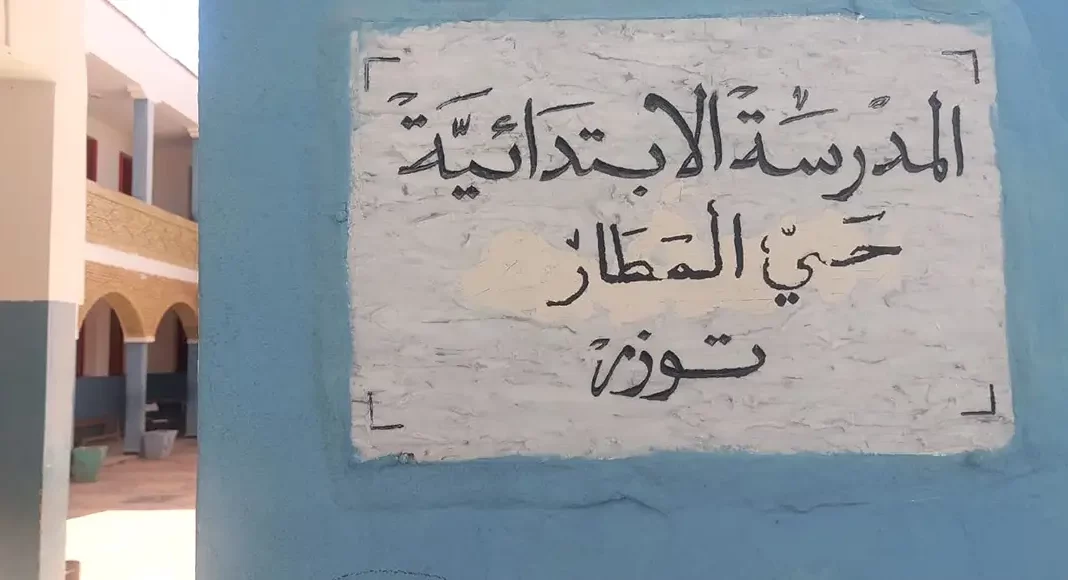 المدرسة الابتدائيّة
حيّ المطار
توزر